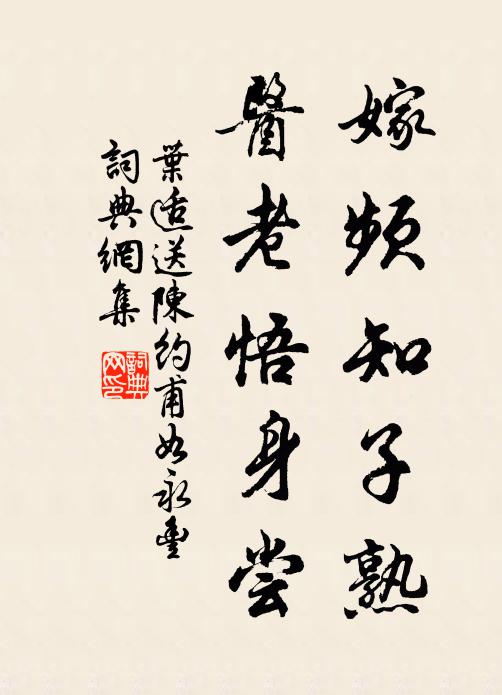 嫁頻知子熟
醫老悟身尝
葉適送陳約甫如永豐
詞典網集
詞典
网印